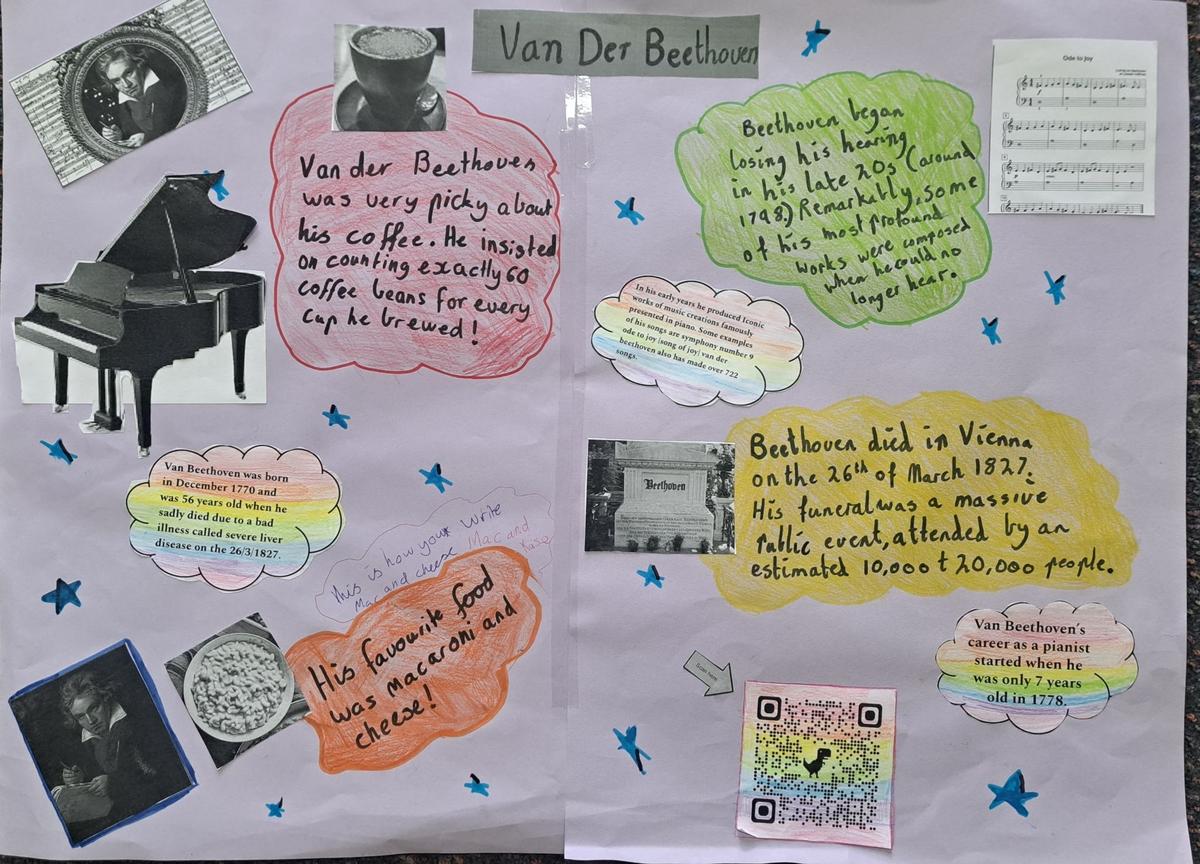 Van Der Beethoven
Ode to Joy
Van der Beethoven
was very picky about
his coffee. He insisted
on counting exactly 60
coffee beans for every
cup he brewed!
Beethoven began
losing his hearing
in his late 20s (around
1798.) Remarkably, some
of his most profound
works were composed
when he could no
longer hear.
In his early years he produced Iconic
works of music creations famously
presented in piano. Some examples
of his songs are symphony number 9
ode to joy (song of joy) van der
beethoven also has made over 722
songs.
Van Beethoven was born
in December 1770 and
was 56 years old when he
sadly died due to a bad
illness called severe liver
disease on the 26/3/1827.
Beethoven
Beethoven died in Vienna
on the 26th of March 1827.
His funeral was a massive
Public event, attended by an
estimated 10,000 t 20,000 people.
This is how you write
Mac and cheese Mac and
Käse
His favourite food
was macaroni and
cheese!
Van Beethoven's
career as a pianist
started when he
was only 7 years
old in 1778.
Scan here